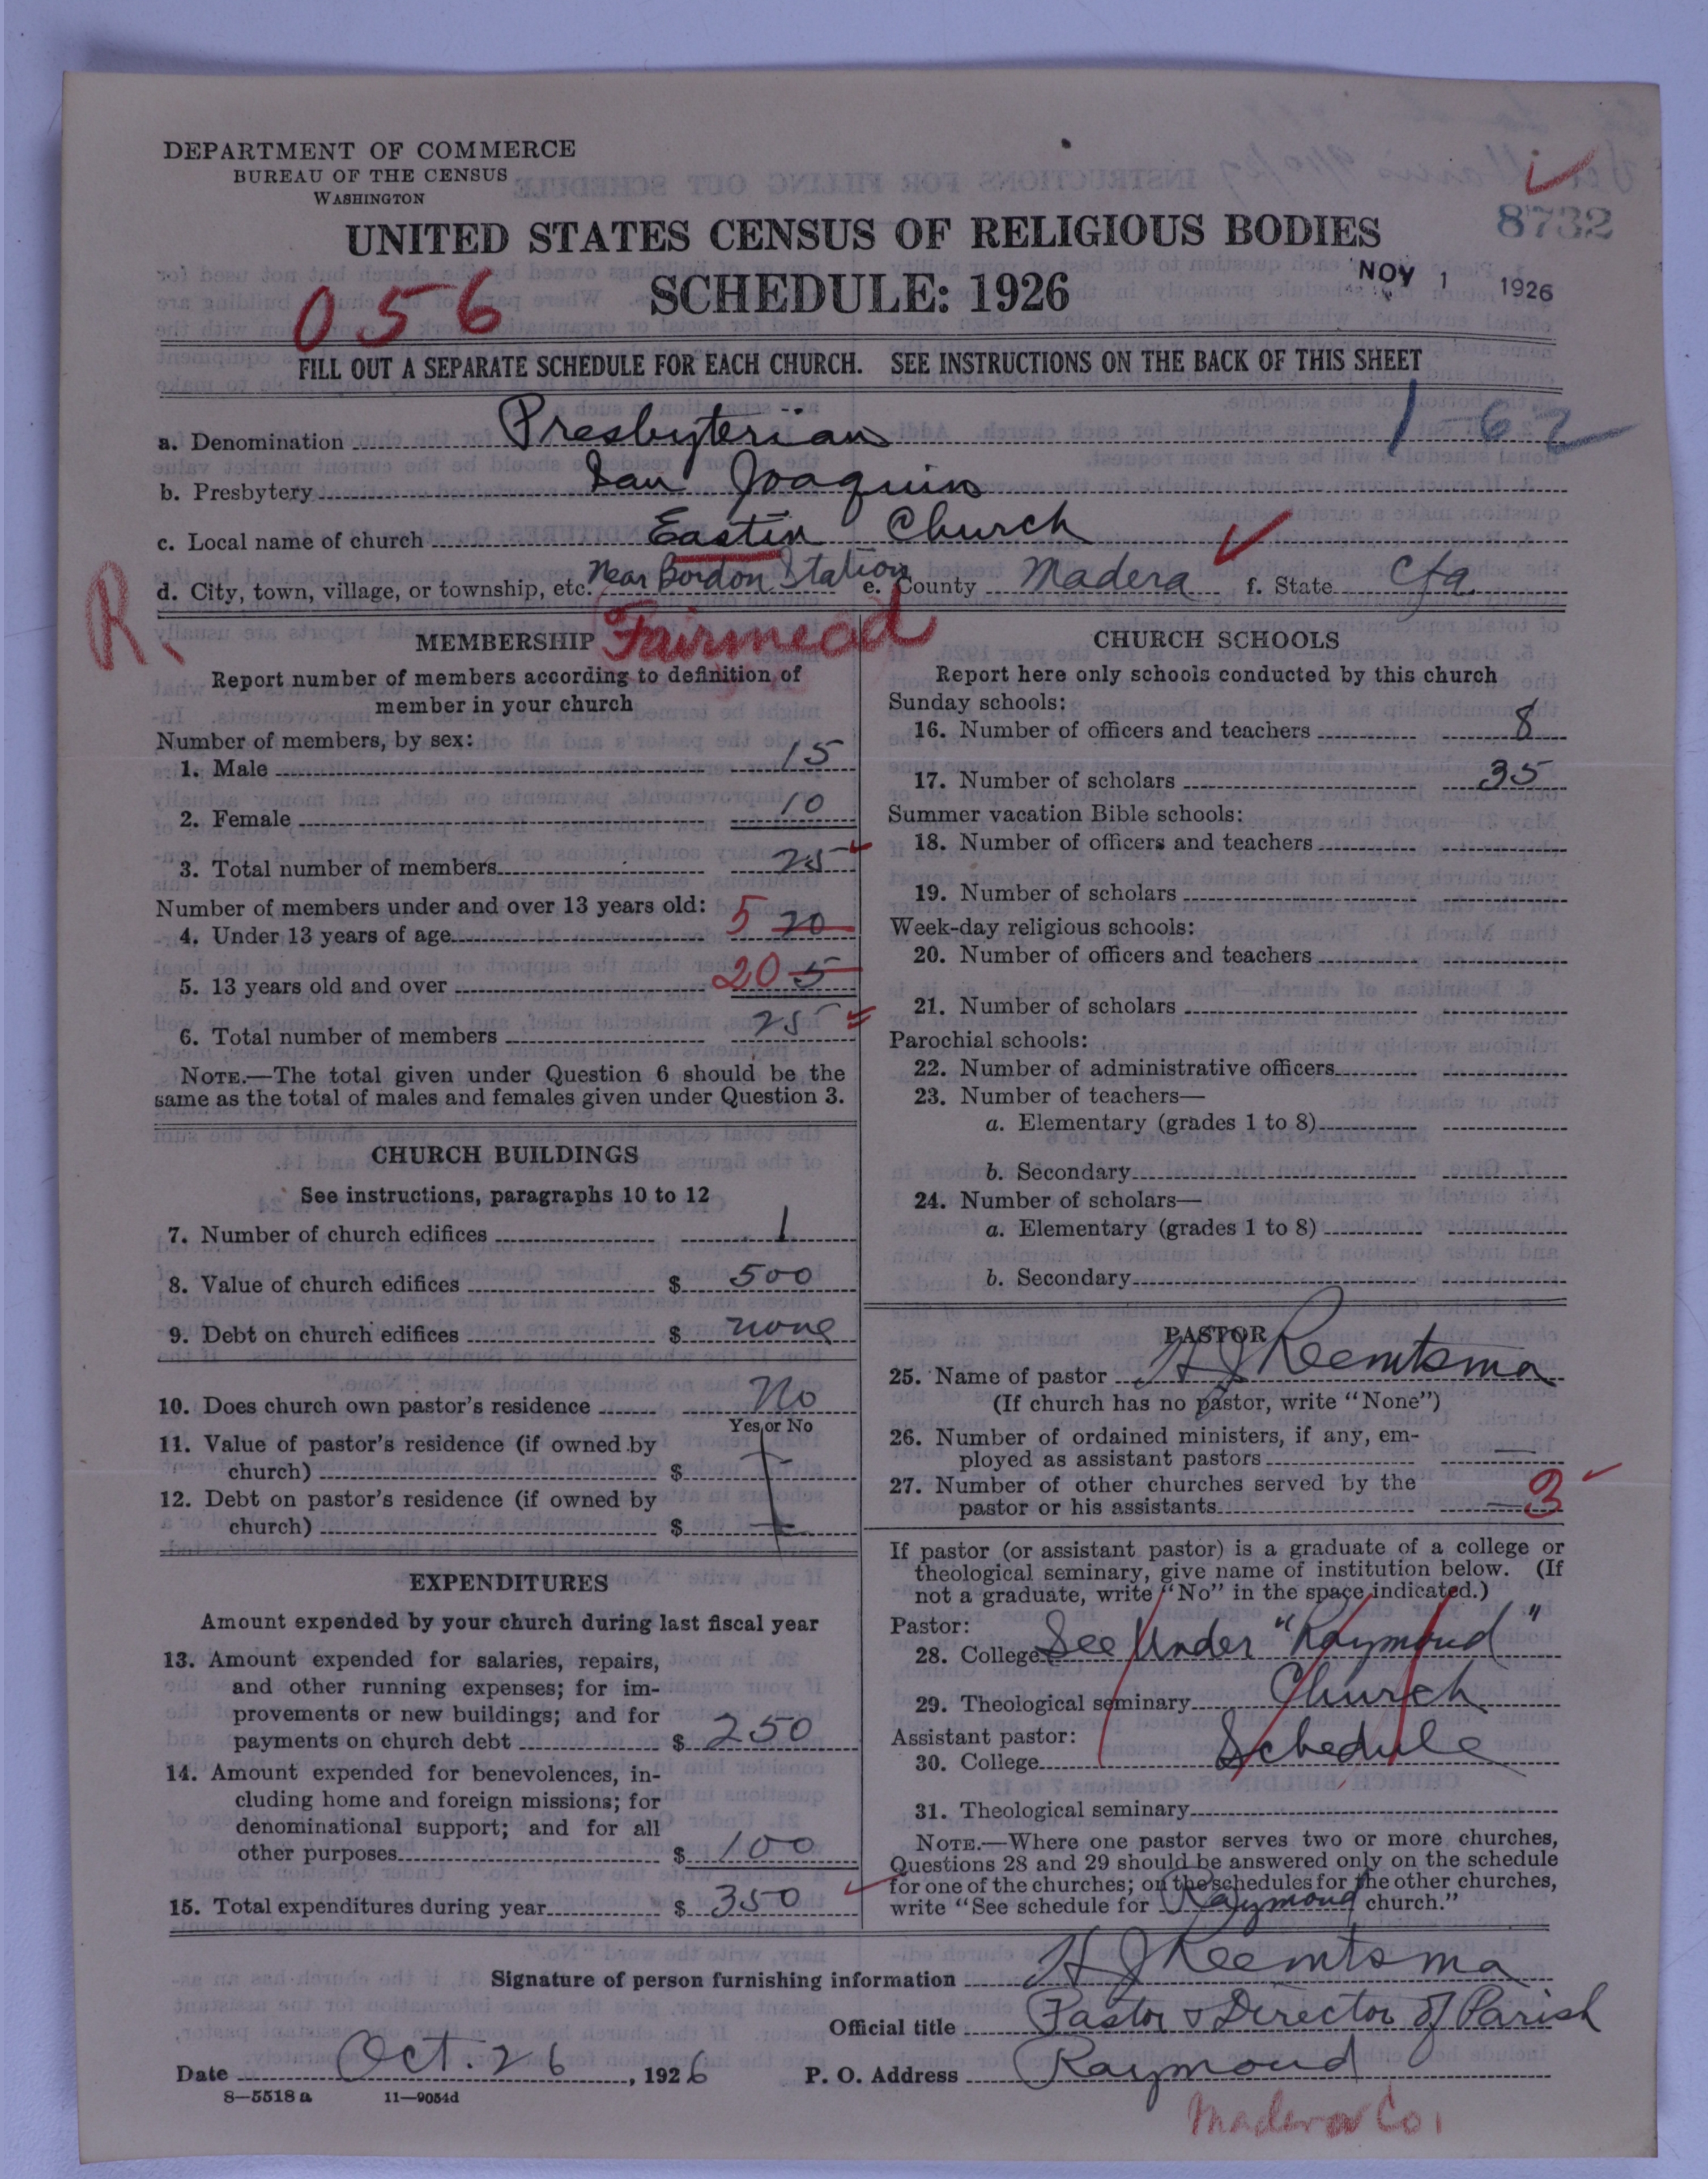 DEPARTMENT OF COMMERCE
BUREAU OF THE CENSUS
WASHINGTON
8732
UNITED STATES CENSUS OF RELIGIOUS BODIES
SCHEDULE: 1926
NOV 1 1926
056
FILL OUT A SEPARATE SCHEDULE FOR EACH CHURCH. SEE INSTRUCTIONS ON THE BACK OF THIS SHEET
a. Denomination Presbyterian 1-62
b. Presbytery San Joaquin
c. Local name of church Eastin Church
d. City, town, village, or township, etc. Near Bordon Station e. County Madera f. State Cfa
R
Fairmead
MEMBERSHIP
Report number of members according to definition of
member in your church
Number of members, by sex:
1. Male 15
2. Female 10
3. Total number of members 25
Number of members under and over 13 years old:
4. Under 13 years of age 5 20
5. 13 years old and over 20 5
6. Total number of members 25
NOTE.—The total given under Question 6 should be the
same as the total of males and females given under Question 3.
CHURCH BUILDINGS
See instructions, paragraphs 10 to 12
7. Number of church edifices 1
8. Value of church edifices $ 500
9. Debt on church edifices $ none
10. Does church own pastor's residence No
Yes or No
11. Value of pastor's residence (if owned by
church) $
12. Debt on pastor's residence (if owned by
church) $
EXPENDITURES
Amount expended by your church during last fiscal year
13. Amount expended for salaries, repairs,
and other running expenses; for im-
provements or new buildings; and for
payments on church debt $ 250
14. Amount expended for benevolences, in-
cluding home and foreign missions; for
denominational support; and for all
other purposes $ 100
15. Total expenditures during year $ 350
CHURCH SCHOOLS
Report here only schools conducted by this church
Sunday schools:
16. Number of officers and teachers 8
17. Number of scholars 35
Summer vacation Bible schools:
18. Number of officers and teachers
19. Number of scholars
Week-day religious schools:
20. Number of officers and teachers
21. Number of scholars
Parochial schools:
22. Number of administrative officers
23. Number of teachers—
a. Elementary (grades 1 to 8)
b. Secondary
24. Number of scholars—
a. Elementary (grades 1 to 8)
b. Secondary
PASTOR
25. Name of pastor H J Reemtsma
(If church has no pastor, write "None")
26. Number of ordained ministers, if any, em-
ployed as assistant pastors —
27. Number of other churches served by the
pastor or his assistants 3
If pastor (or assistant pastor) is a graduate of a college or
theological seminary, give name of institution below. (If
not a graduate, write "No" in the space indicated.)
Pastor:
28. College See Under "Raymond"
29. Theological seminary Church
Assistant pastor:
30. College Schedule
31. Theological seminary
NOTE.—Where one pastor serves two or more churches,
Questions 28 and 29 should be answered only on the schedule
for one of the churches; on the schedules for the other churches,
write "See schedule for Raymond church."
Signature of person furnishing information H J Reemtsma
Official title Pastor & Director of Parish
Date Oct. 26, 1926 P. O. Address Raymond
8—5518 a 11—9054d
Madera Co.